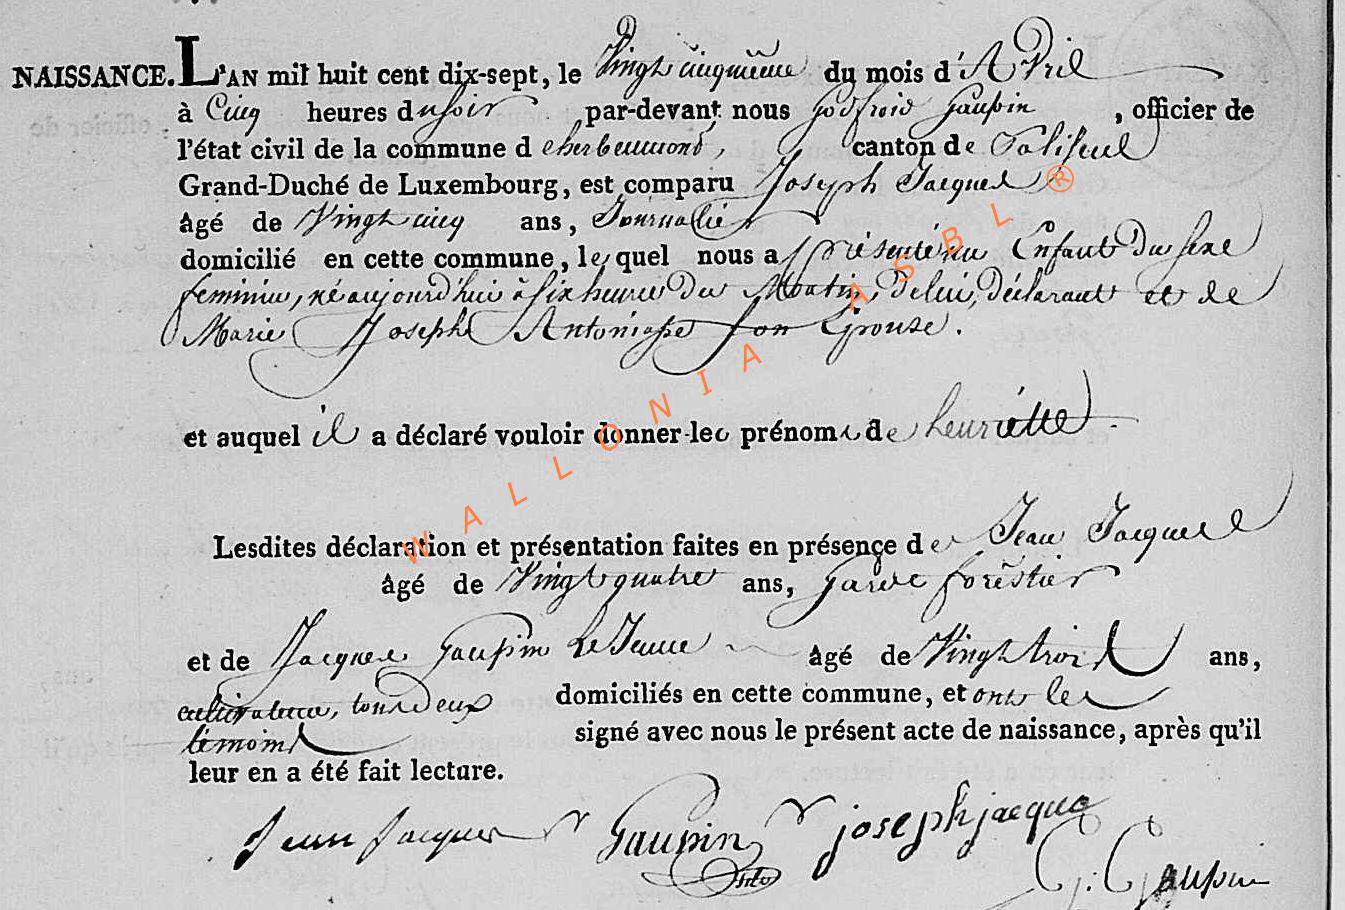 NAISSANCE. L'AN mil huit cent dix-sept, le Vingt cinquieme du mois d'Avril
à Cinq heures du soir par-devant nous Godfroid Gaupin, officier de
l'état civil de la commune d'herbeumont, canton de Paliseul
Grand-Duché de Luxembourg, est comparu Joseph Jacques
âgé de Vingt cinq ans, Journallier
domicilié en cette commune, lequel nous a présenté un Enfant Du sexe
feminin, né aujourd'huis à six heures Du Matin, De lui, Déclarant et de
Marie Joseph Antoniasse son Epouse.
et auquel il a déclaré vouloir donner les prénoms de henriette
Lesdites déclaration et présentation faites en présence de Jean Jacques
âgé de Vingt quatre ans, garde forèstier
et de Jacques Gaupin Le Jeune âgé de Vingt trois ans,
cultivateur, tous Deux domiciliés en cette commune, et ont les
témoins signé avec nous le présent acte de naissance, après qu'il
leur en a été fait lecture.
Jean Jacques Gaupin joseph jacque
G: Gaupin
WALLONIA ASBL ®